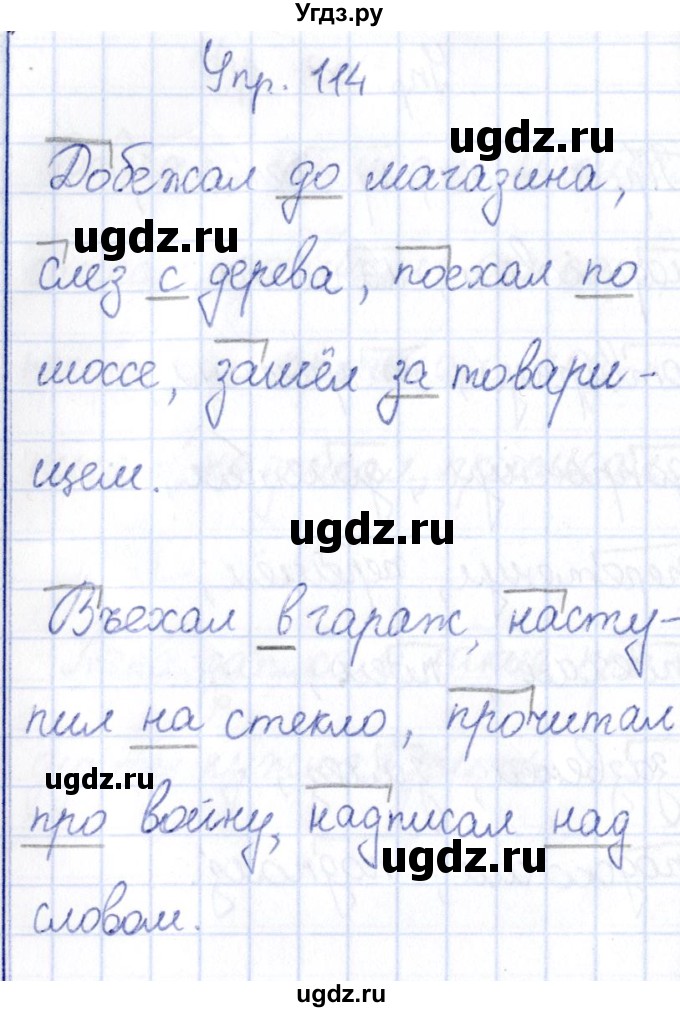 Угдз.ру
Упр. 114
ugdz.ru
Добежал до магазина,
ugdz.ru
слез с дерева, поехал по
шоссе, зашёл за товари-
щем.
ugdz.ru
Въехал в гараж, насту-
пил на стекло, прочитал
ugdz.ru
про войну, надписал над
ugdz.ru
словом.
ugdz.ru